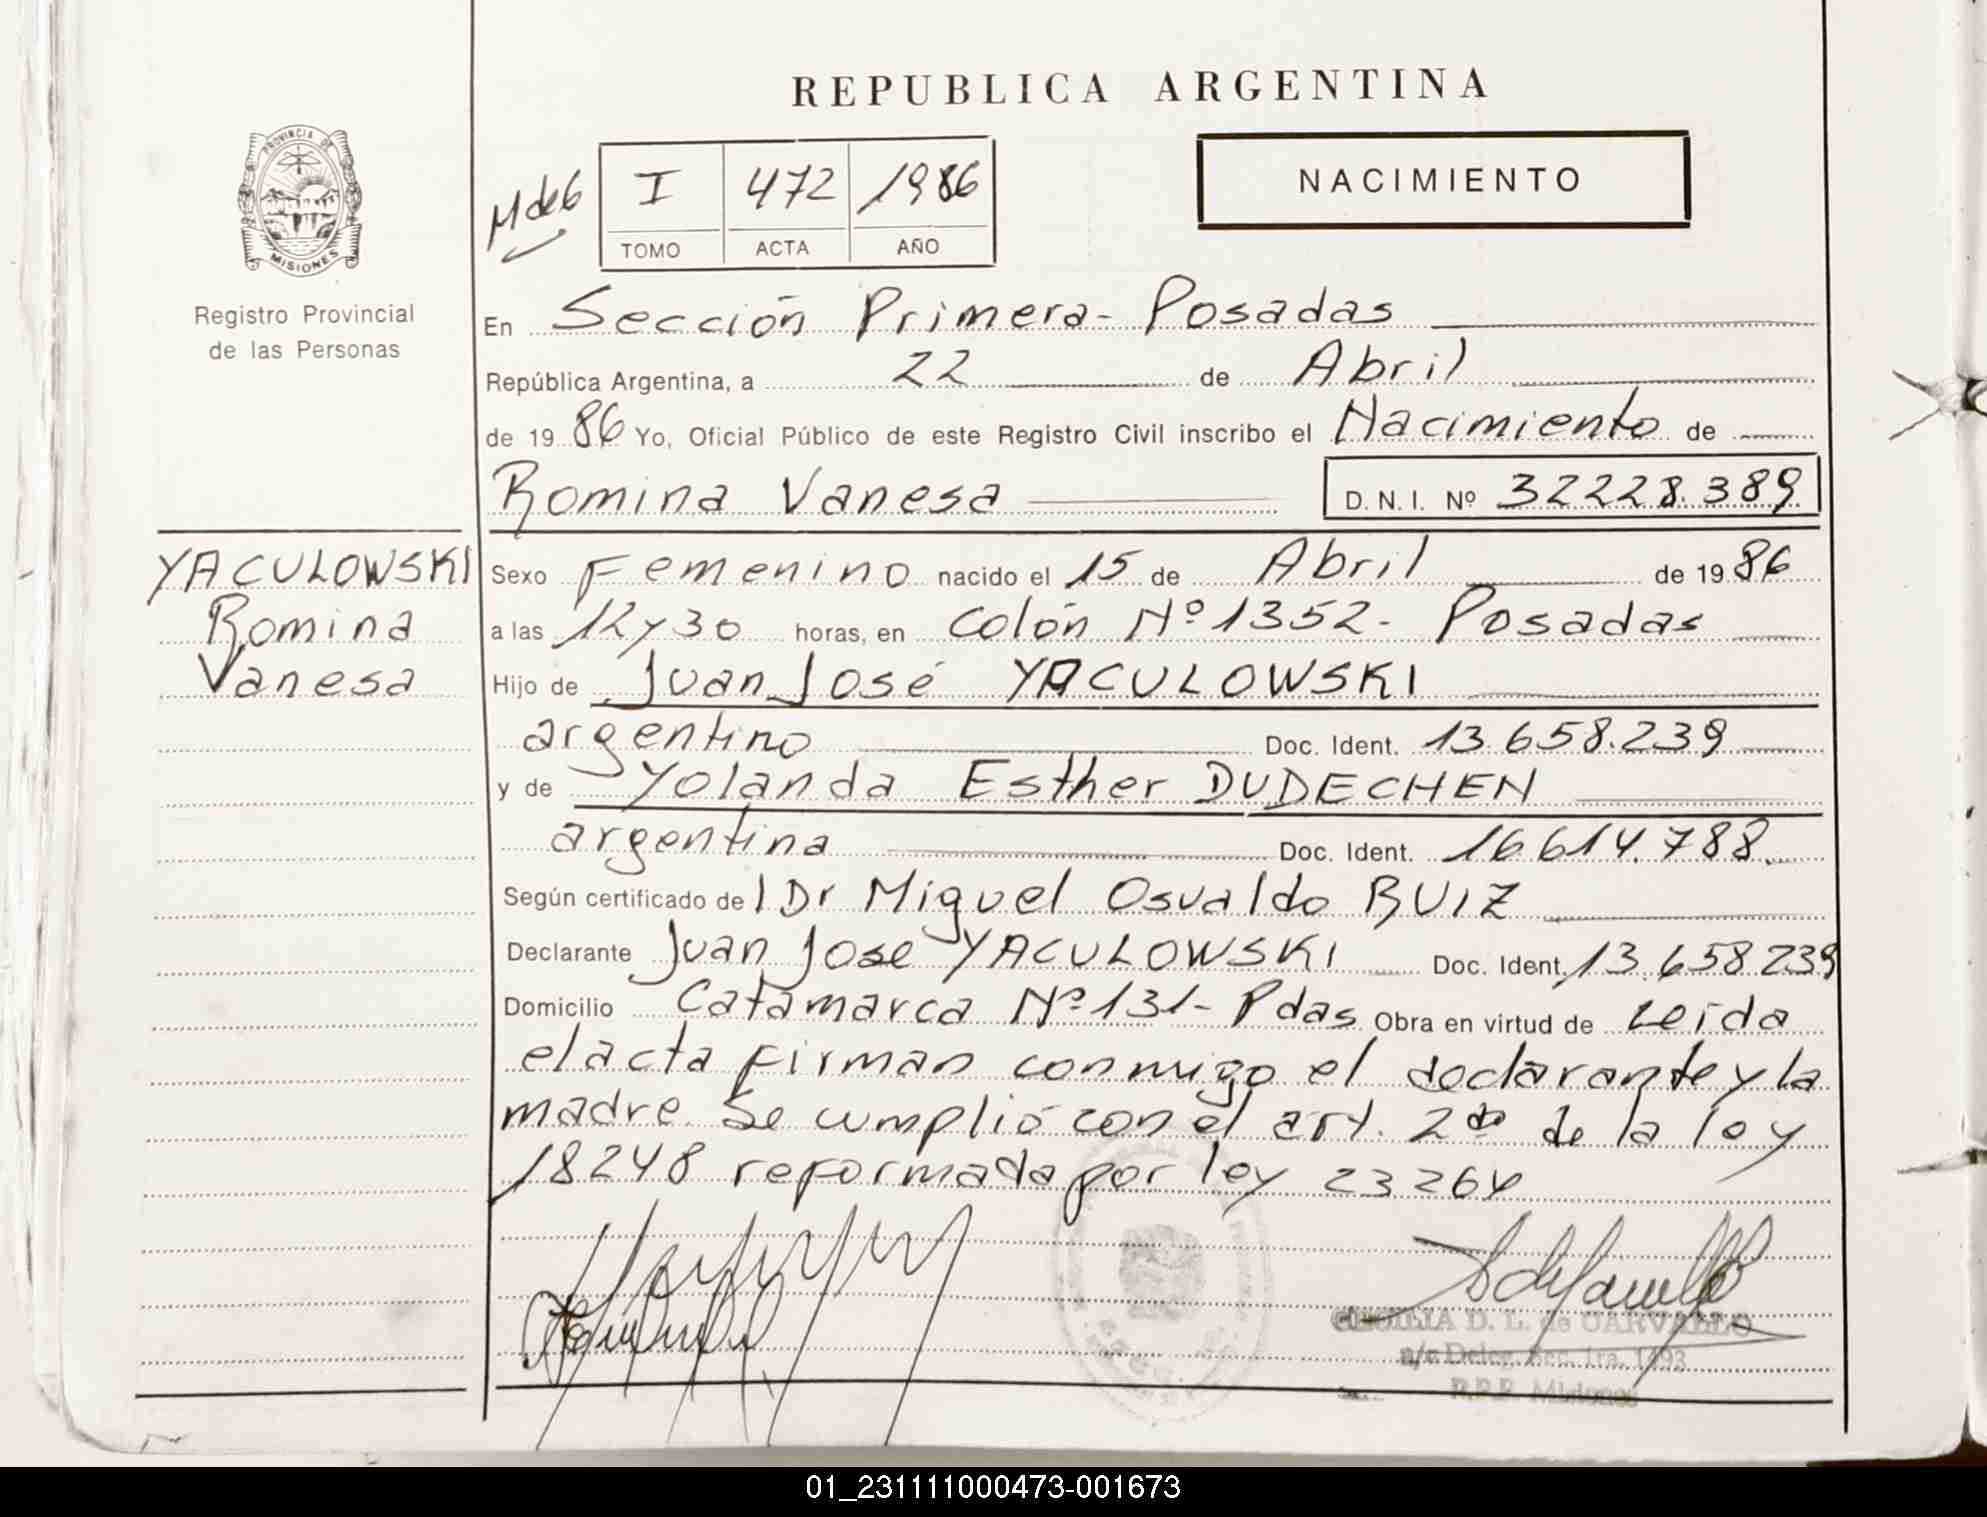 REPUBLICA ARGENTINA
PROVINCIA DE
MISIONES
Registro Provincial
de las Personas
M de 6
I 472 1986
TOMO ACTA AÑO
NACIMIENTO
En Sección Primera - Posadas
República Argentina, a 22 de Abril
de 1986 Yo, Oficial Público de este Registro Civil inscribo el Nacimiento de
Romina Vanesa D. N. I. Nº 32228.389
YACULOWSKI
Romina
Vanesa
Sexo Femenino nacido el 15 de Abril de 1986
a las 12 y 30 horas, en Colón Nº 1352 - Posadas
Hijo de Juan José YACULOWSKI
argentino Doc. Ident. 13.658.239
y de Yolanda Esther DUDECHEN
argentina Doc. Ident. 16.614.788.
Según certificado de l Dr Miguel Osvaldo RUIZ
Declarante Juan Jose YACULOWSKI Doc. Ident. 13.658.239
Domicilio Catamarca Nº 131 - Pdas Obra en virtud de Leida
el acta firman conmigo el declarante y la
madre. Se cumplió con el art. 2do de la ley
18248 reformada por ley 23264
CECILIA D. L. de CARVALLO
a/c Deleg. Sec. 1ra.
R.P.P. Misiones
01_231111000473-001673